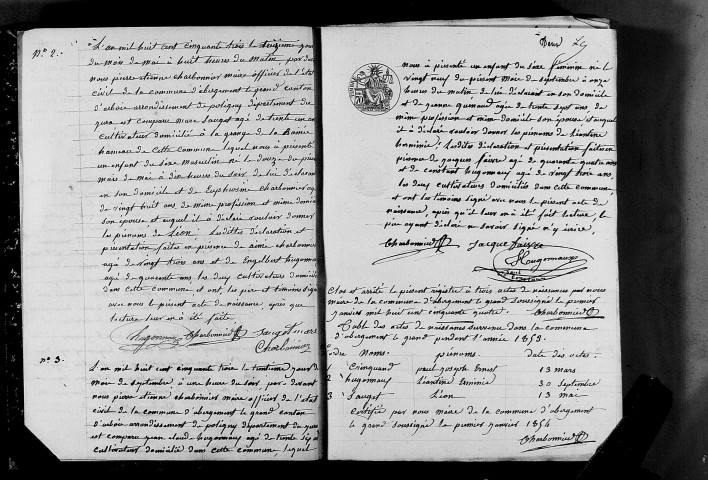 N.o 2.
L'an mil huit cent cinquante trois le treizième jour
du mois de mai à huit heures du matin, par devant
nous pierre etienne charbonnier maire officier de l'état
civil de la commune d'abergement le grand canton
d'arbois arrondissement de poligny departement du
jura est comparu marc Sauget agé de trente un ans
cultivateur domicilié à la grange de la
hameau de cette commune lequel nous a présenté
un enfant du sexe masculin né le douze du présent
mois de mai à dix heures du soir, de lui déclarant
en son domicile et de Euphrosine charbonnier agée
de vingt huit ans de même profession et même domicile
son épouse et auquel il a déclaré vouloir donner
les prénoms de Léon: lesdittes déclaration et
présentation faites en présence de aimé charbonnier
agé de vingt trois ans et de Engelbert hugonnaux
agé de quarante ans les deux cultivateurs domiciliés
dans cette commune, et ont, les père et témoins signé
avec nous le présent acte de naissance, après que
lecture leur en a été faite.
hugonnaux Charbonnier Sauget marc
Charbonnier
N.o 3.
L'an mil huit cent cinquante trois le trentième jour du
mois de septembre à une heure du soir, par devant
nous pierre etienne charbonnier maire officier de l'état
civil de la commune d'abergement le grand canton
d'arbois arrondissement de poligny departement du jura
est comparu jean claude hugonnaux agé de trente sept ans
cultivateur domicilié dans cette commune, lequel
nous a présenté un enfant du sexe féminin né le
vingt neuf du présent mois de septembre à onze
heures du matin de lui déclarant en son domicile
et de agée de trente sept ans de
même profession et même domicile son épouse et auquel
il a déclaré vouloir donner les prénoms de Léantine
herminie; lesdittes déclaration et présentation faites en
présence de jacques faivre agé de quarante quatre ans
et de constant hugonnaux agé de vingt trois ans,
les deux cultivateurs domiciliés dans cette commune,
et ont les témoins signé avec nous le présent acte de
naissance, après qu'il leur en a été fait lecture, le
père ayant déclaré ne savoir signer n'y écrire,
Charbonnier Jacque faivre
Hugonnaux
Clos et arrêté le présent registre à trois actes de naissances par nous
maire de la commune d'abergement le grand soussigné le premier
janvier mil huit cent cinquante quatre. Charbonnier
Table des actes de naissances survenus dans la commune
d'abergement le grand pendant l'année 1853.
Noms. prénoms. date des actes.
1 Crinquand paul joseph Ernest 13 mars
2 hugonnaux Léantine Erminie 30 septembre
3 Sauget Léon 13 mai
Certifié par nous maire de la commune d'abergement
le grand soussigné le premier janvier 1854
Charbonnier